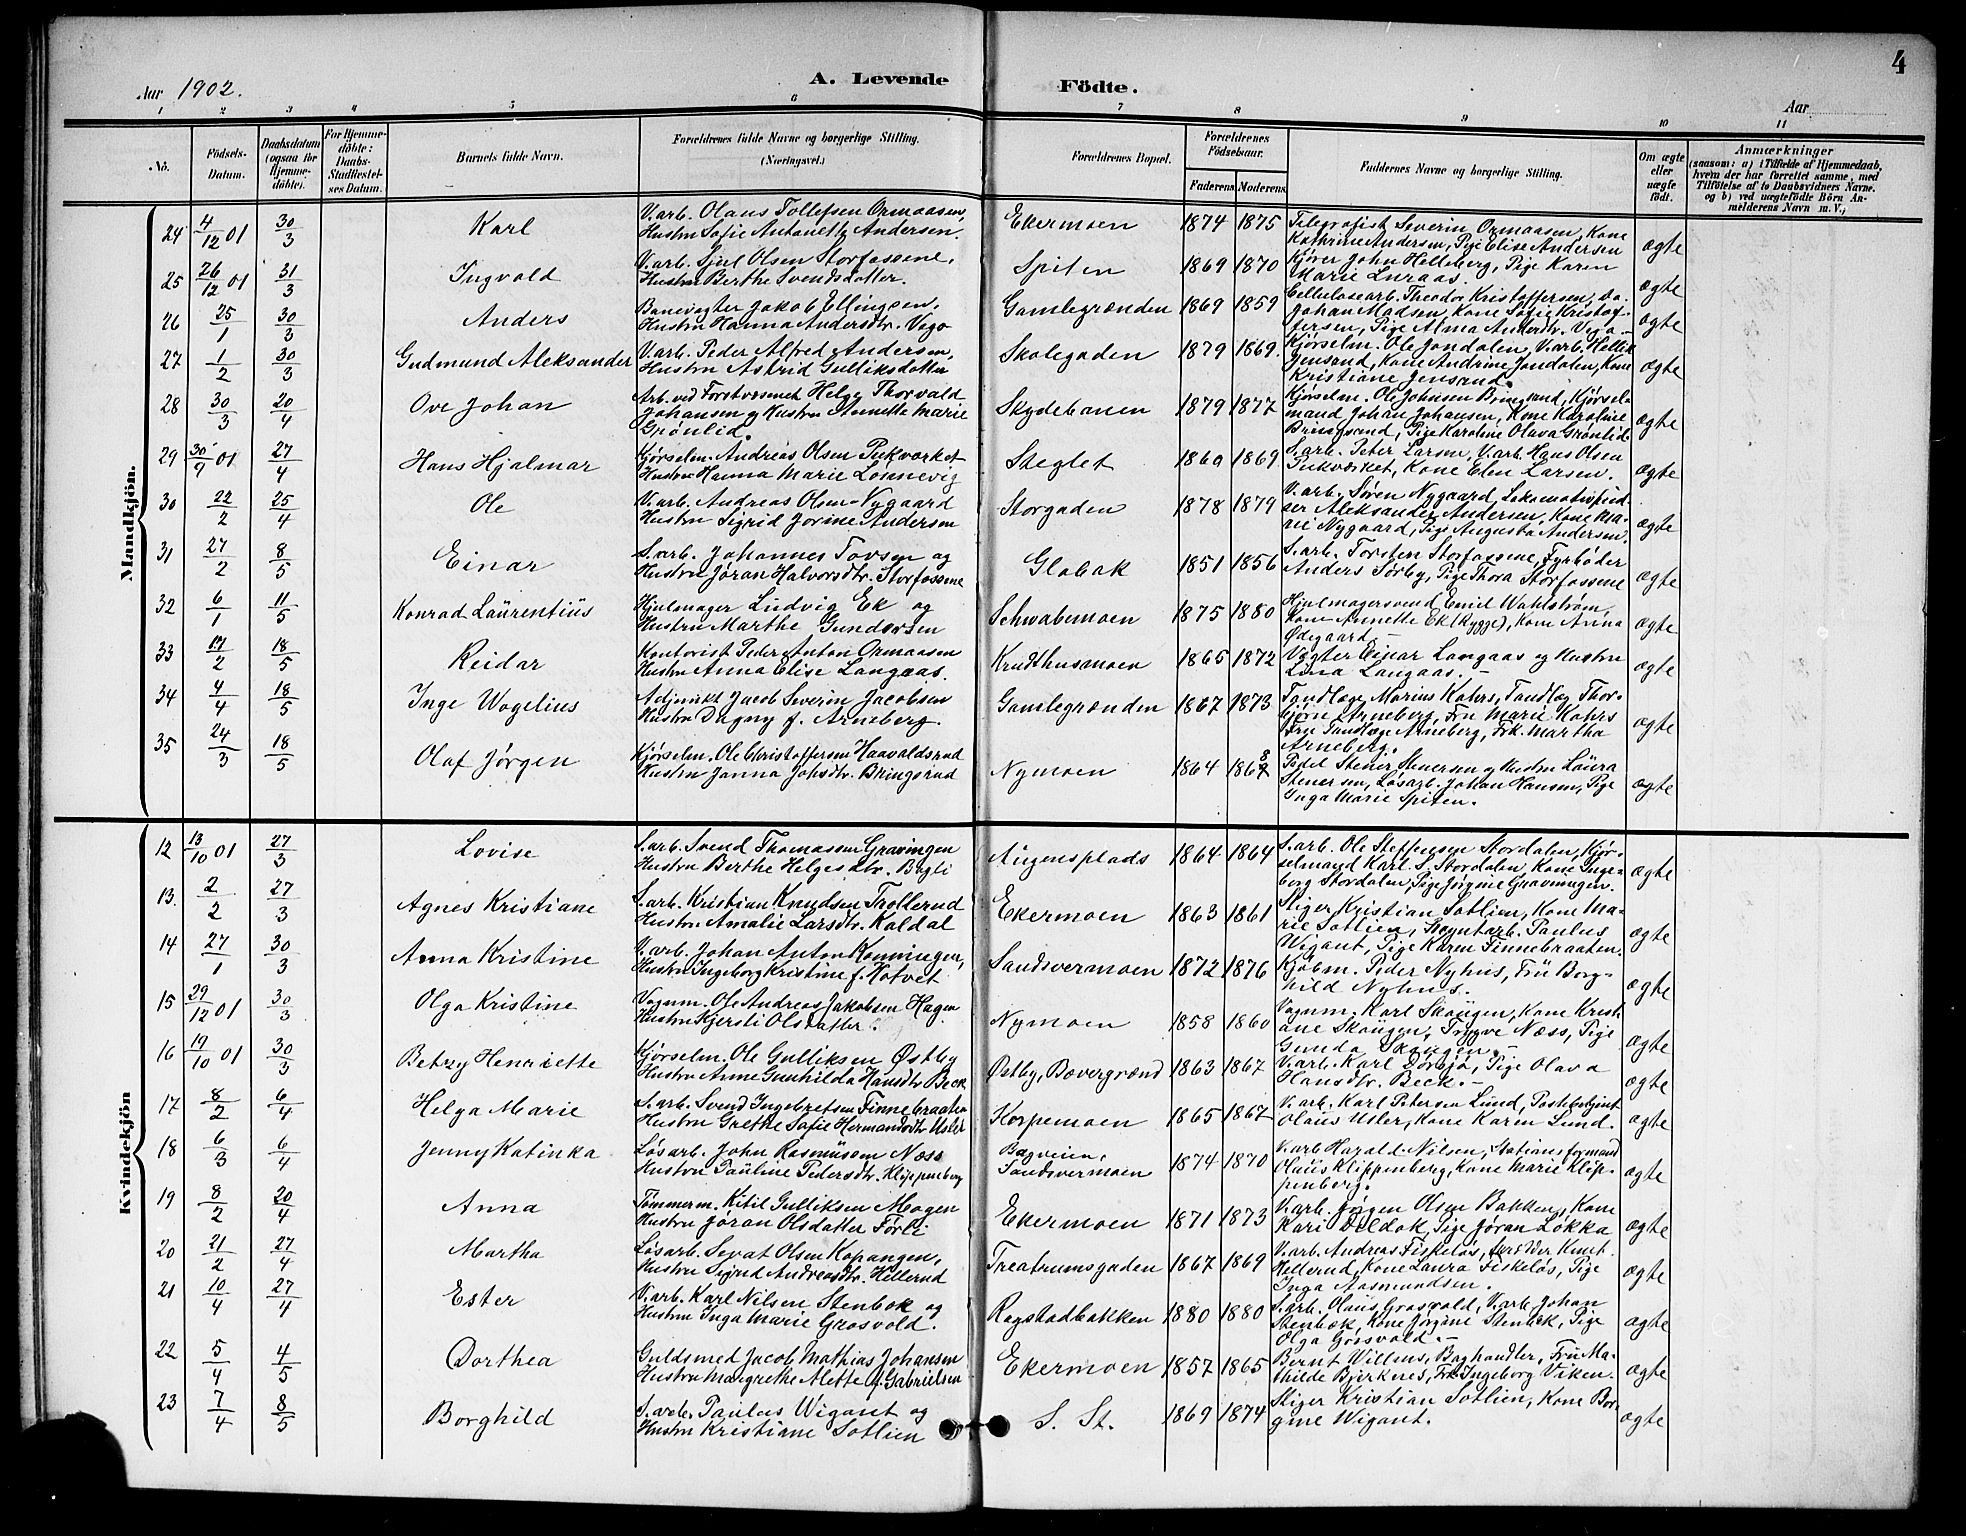 4
Aar 1902.
A. Levende Födte.
Aar
1 2 3 4 5 6 7 8 9 10 11
No.
Födsels-Datum.
Daabsdatum (ogsaa for Hjemmedöbte).
For Hjemmedöbte: Daabs-Stadfæstelses Datum.
Barnets fulde Navn.
Forældrenes fulde Navne og borgerlige Stilling. (Næringsvei.)
Forældrenes Bopæl.
Forældrenes Födselsaar.
Faderens. Moderens.
Faddernes Navne og borgerlige Stilling.
Om ægte eller uægte födt.
Anmærkninger
(saasom: a) i Tilfælde af Hjemmedaab, hvem der har forrettet samme, med Tilföielse af to Daabsvidners Navne. og b) ved uægtefödte Börn Anmelderens Navn m. V.;
Mandkjön.
24 4/12 01 30/3 Karl V.arb. Olaus Tollefsen Ormaasen, Hustru Sofie Antonette Andersen. Ekermoen 1874 1875 Telegrafist Severin Ormaasen, Kone Kathrine Andersen, Pige Elise Andersen ægte
25 26/12 01 31/3 Ingvald V.arb. Sjul Olsen Storfossene, Hustru Berthe Svendsdatter. Spiten 1869 1870 Kjører John Helleberg, Pige Karen Marie Luraas. ægte
26 25/1 30/3 Anders Banevogter Jakob Ellingsen, Hustru Hanna Andersdtr. Vego Gamlegrænden 1869 1859 Cellulosearb. Theodor Kristoffersen, Do. Johan Madsen, Kone Sofie Kristoffersen, Pige Alma Andersdtr. Vego.- ægte
27 1/2 30/3 Gudmund Aleksander V.arb. Peder Alfred Andersen, Hustru Astrid Gulliksdatter Skolegaden 1879 1869. Kjørselm. Ole Jondalen, V.arb. Hellik Jensrud, Kone Andrine Jondalen, Kone Kristiane Jensrud. ægte
28 30/3 20/4 Ove Johan Arb. ved Forstvæsenet Helge Thorvald Johansen og Hustru Annette Marie Grønlid. Skydebanen 1879 1877 Kjørselm. Ole Johnsen Bringsrud, Kjørselmand Johan Johansen, Kone Karoline Bringsrud, Pige Karoline Olava Grønlid. ægte
29 30/9 01 27/4 Hans Hjalmar Kjørselm. Andreas Olsen Pukværket Hustru Hanna Marie Lønnevig Steglet 1860 1869 S.arb. Peter Larsen, V.arb. Hans Olsen Pukværket, Kone Elen Larsen. ægte
30 22/2 25/4 Ole V.arb. Andreas Olsen Nygaard Hustru Sigrid Jorine Andersen Storgaden 1878 1879 V.arb. Søren Nygaard, Lokomotivpudser Aleksander Andersen, Kone Marie Nygaard, Pige Augusta Andersen. ægte
31 27/2 8/5 Einar S.arb. Johannes Tovsen og Hustru Jøran Halvorsdtr. Storfossene Glabak 1851 1856 S.arb. Torsten Storfossene, Fyrbøder Anders Sørby, Pige Thora Storfossene ægte
32 6/1 11/5 Konrad Laurentius Hjulmager Ludvig Ek og Hustru Marthe Gundersen Schwabemoen 1875 1880 Hjulmagersvend Emil Wahlstrøm, Kone Annette Ek (Rygge), Kone Anna Ødegaard.- ægte
33 17/2 18/5 Reidar Kontorist Peder Anton Ormaasen Hustru Anna Elise Langaas. Krudthusmoen 1865 1872 Vægter Einar Langaas og Hustru Lina Langaas.- ægte
34 4/4 18/5 Inge Wogelius Adjunkt Jacob Severin Jacobsen Hustru Dagny f. Arneberg. Gamlegrænden 1867 1873 Tandlæge Marius Kahrs, Tandlæg Thorbjørn Arneberg, Fru Marie Kahrs Fru Tandlæge Arneberg, Frk. Martha Arneberg. ægte
35 24/3 18/5 Olaf Jørgen Kjørselm. Ole Christoffersen Haavaldsrud Hustru Janna Johsdtr. Bringsrud Nymoen 1864 1868 Pedel Stener Stenersen og Hustru Laura Stenersen, Løsarb. Johan Hansen, Pige Inga Marie Spiten. ægte
Kvindekjön
12 13/10 01 27/3 Lovise S.arb. Svend Thomassen Gravingen Hustru Berthe Helgesdtr. Bagli Augensplads 1864 1864 S.arb. Ole Steffensen Stordalen, Kjørselmand Karl S. Stordalen, Kone Ingeborg Stordalen, Pige Jørgine Gravningen. ægte
13. 2/2 27/3 Agnes Kristiane S.arb. Kristian Knudsen Trollerud Hustru Amalie Larsdtr. Kaldal Ekermoen 1863 1861 Stiger Kristian Sotlien, Kone Marie Sotlien, Paulus Wigant, Pige Karen Finnebraaten. ægte
14 27/1 30/3 Anna Kristine V.arb. Johan Anton Henningen, Hustru Ingeborg Kristine f. Hotvet Sandsvermoen 1872 1876 Kjøbm. Peder Nyhus, Fru Borghild Nyhus. ægte
15 29/12 01 30/3 Olga Kristine Vognm. Ole Andreas Jakobsen Hagen Hustru Kjersti Olsdatter. Nymoen 1858 1860 Vognm. Karl Skougen, Kone Kristiane Skougen, Trygve Næss, Pige Gunda Skougen.- ægte
16 19/10 01 30/3 Betzy Henriette Kjørselm. Ole Gulliksen Østby Hustru Anne Gunhilda Hansdtr. Beck Østby, Bævergrænd 1863 1867 V.arb. Karl Sørbjø, Pige Olava Hansdtr. Beck.- ægte
17 8/2 6/4 Helga Marie S.arb. Svend Ingebretsen Finnebraaten Hustru Grethe Sofie Hermansdtr. Usler Korpemoen 1865 1867 V.arb. Karl Petersen Lund, Postbetjent Olaus Usler, Kone Karen Lund. ægte
18 6/3 6/4 Jenny Katinka Løsarb. John Rasmussen Næss Hustru Pauline Pedersdtr. Klippenberg Bagveien, Sandsvermoen 1874 1870 V.arb. Harald Nilsen, Stationsformand Olaus Klippenberg, Kone Marie Klippenberg. ægte
19 8/2 20/4 Anna Tømmerm. Kitil Gulliksen Mogen Hustru Jøran Olsdatter Førli Ekermoen 1871 1873 V.arb. Jørgen Olsen Bakken, Kone Kari Deldok, Pige Jøran Løkka ægte
20 21/2 27/4 Martha Løsarb. Sevat Olsen Kopangen, Hustru Sigrid Andreasdtr. Hellerud Treatrumsgaden 1867 1869 V.arb. Andreas Fiskeløs, Knut Hellerud, Kone Laura Fiskeløs, Pige Inga Aasmundsen. ægte
21 10/4 27/4 Ester V.arb. Karl Nilsen Stenbæk og Hustru Inga Marie Grosvold. Rogstadbakken 1880 1880 S.arb. Olaus Grosvold, V.arb. Johan Stenbæk, Kone Jørgine Stenbæk, Pige Olga Grosvold.- ægte
22 5/4 4/5 Dorthea Guldsmed Jacob Mathias Johansen Hustru Margrethe Alette f. Gabrielsen Ekermoen 1857 1865 Bernt Willens, Boghandler, Fru Mathilde Bjerknes, Frk. Ingeborg Viken. ægte
23 7/4 8/5 Borghild S.arb. Paulus Wigant og Hustru Kristiane Sotlien S. St. 1869 1874 Stiger Kristian Sotlien, Kone Borgine Wigant. ægte